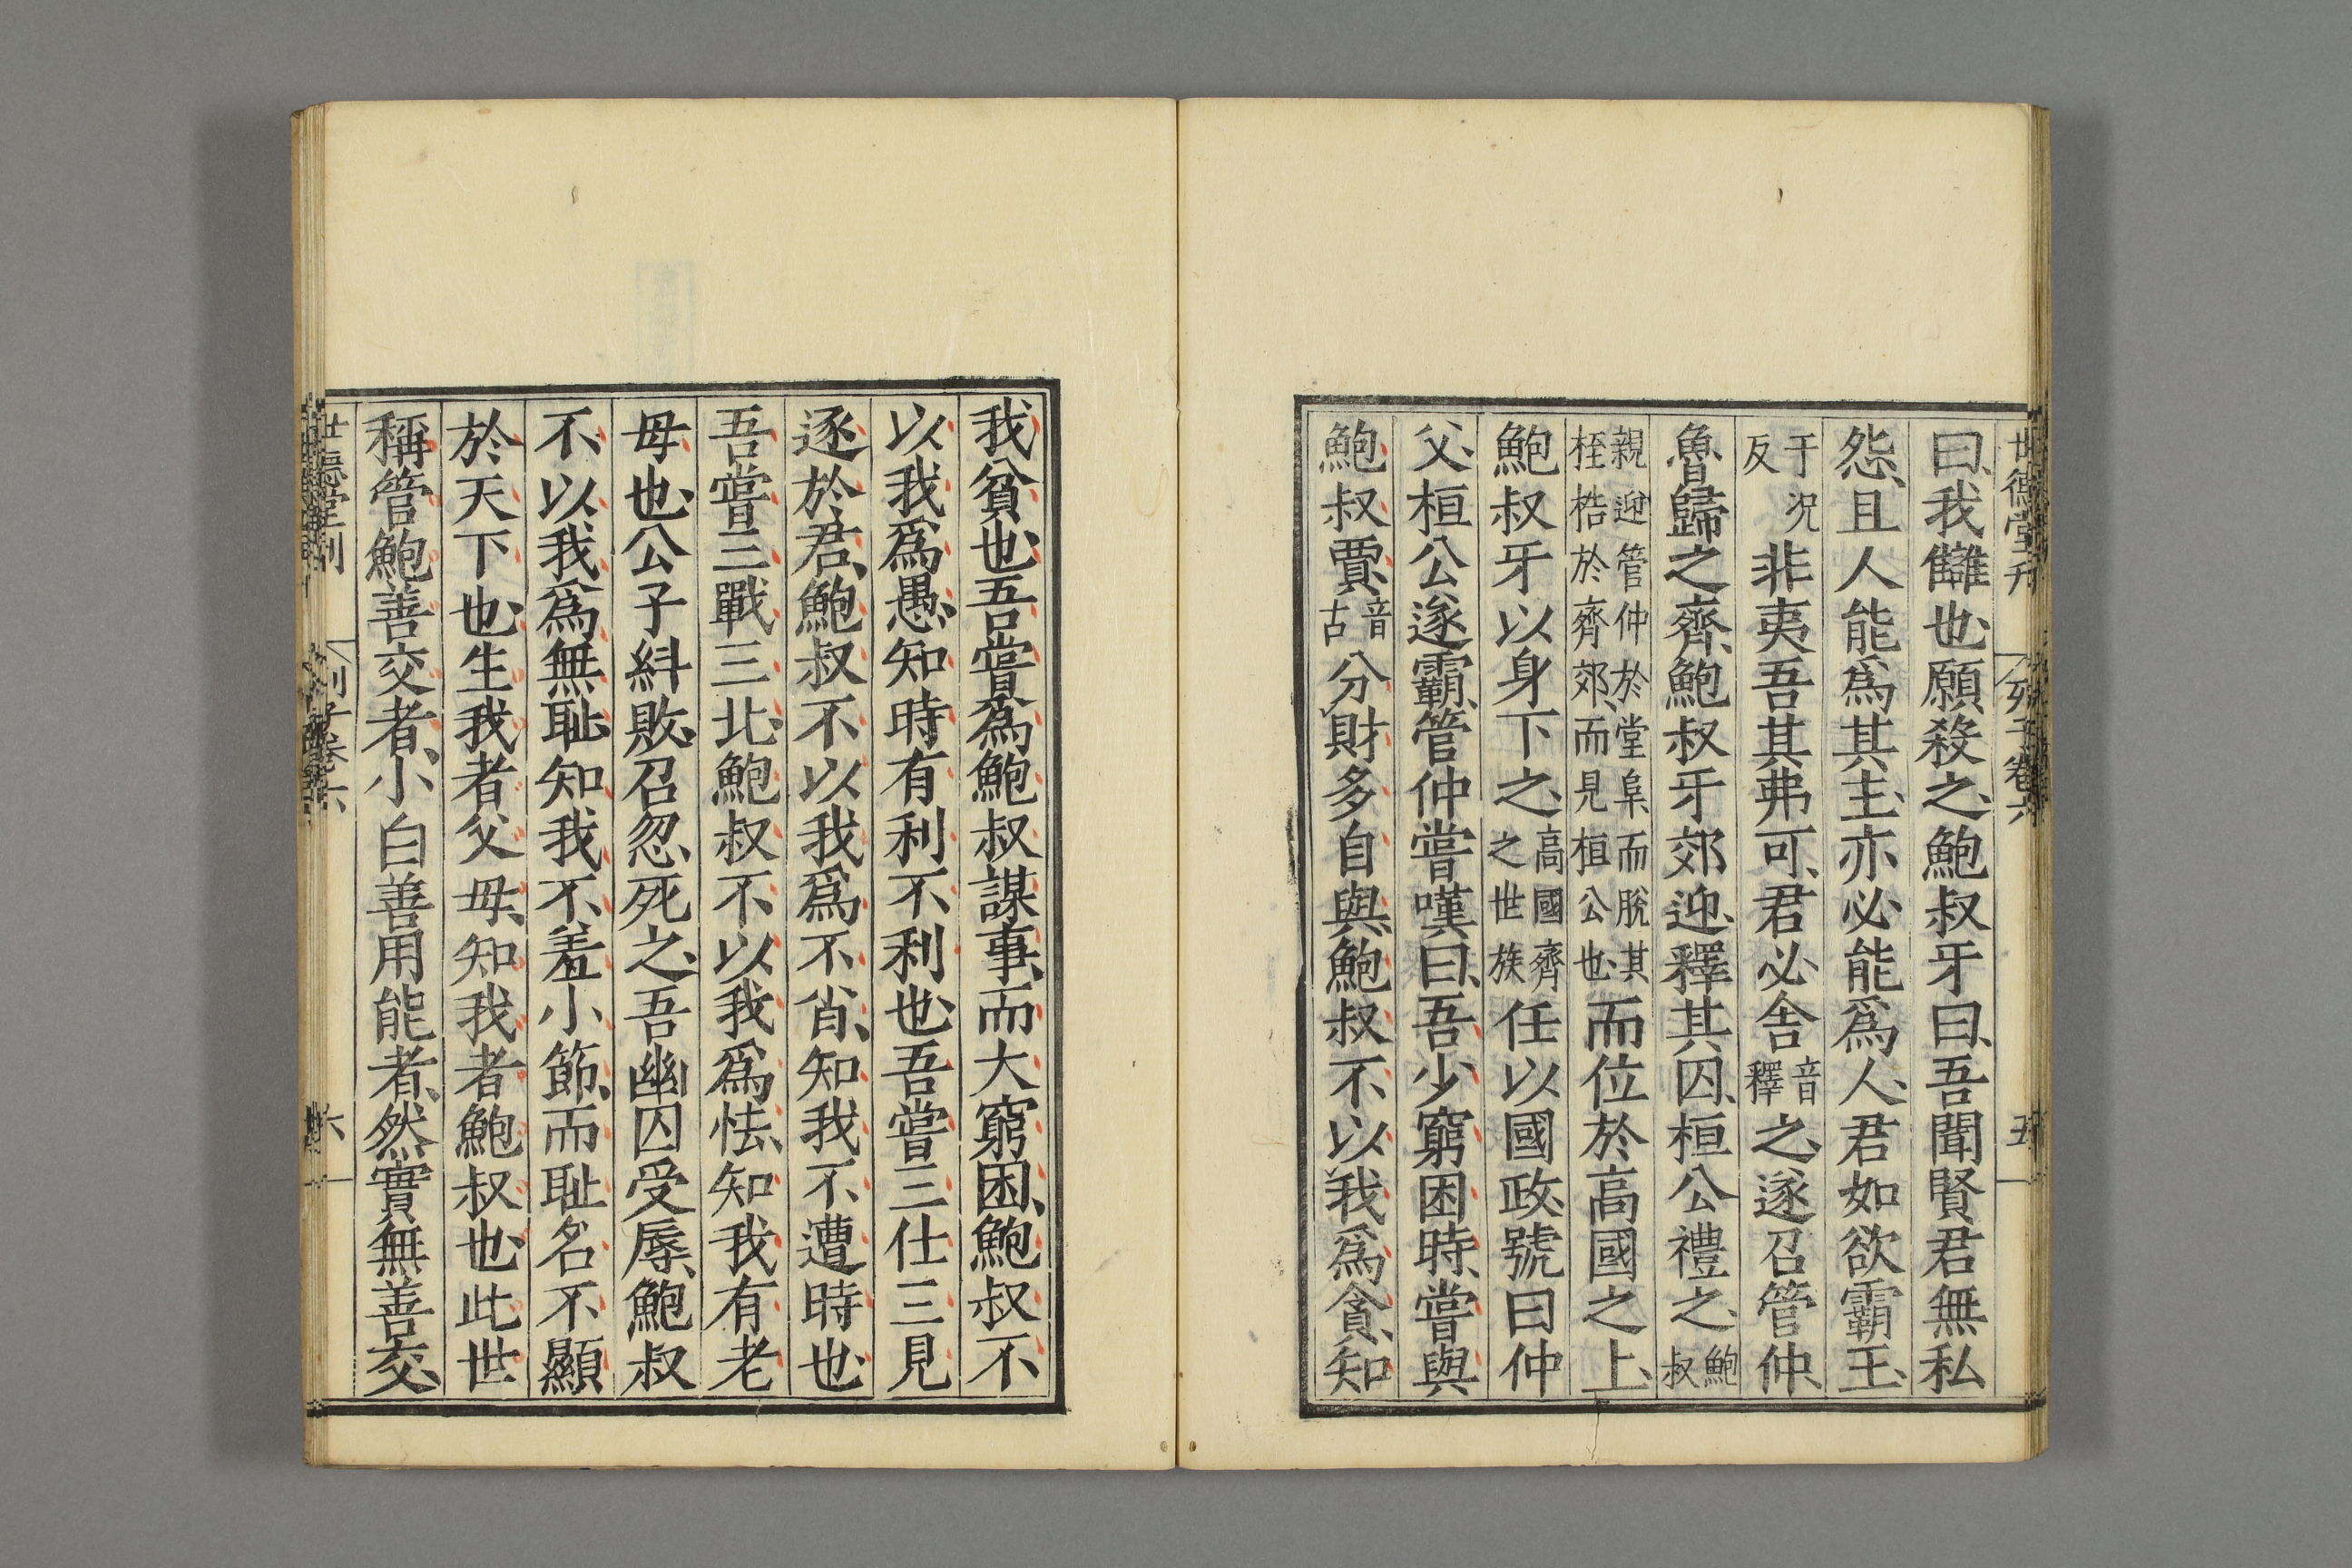 世德堂刊 列子卷六 五
曰、我讎也、願殺之、鮑叔牙曰、吾聞賢君無私
怨、且人能爲其主、亦必能爲人、君如欲霸王、
于况反非夷吾其弗可、君必舍音釋之、遂召管仲、
魯歸之齊、鮑叔牙郊迎、釋其囚、桓公禮之、鮑叔
親迎管仲於堂阜而脫其桎梏於齊郊、而見桓公也、而位於高國之上、
鮑叔牙以身下之、高國齊之世族任以國政、號曰仲
父、桓公遂霸、管仲嘗嘆曰、吾少窮困時、嘗與
鮑叔賈、音古分財多自與、鮑叔不以我爲貪、知
我貧也、吾嘗爲鮑叔謀事、而大窮困、鮑叔不
以我爲愚、知時有利不利也、吾嘗三仕三見
逐於君、鮑叔不以我爲不肖、知我不遭時也、
吾嘗三戰三北、鮑叔不以我爲怯、知我有老
母也、公子糾敗、召忽死之、吾幽囚受辱、鮑叔
不以我爲無恥、知我不羞小節、而恥名不顯
於天下也、生我者父母、知我者鮑叔也、此世
稱管鮑善交者、小白善用能者、然實無善交、
世德堂刊 列子卷六 六